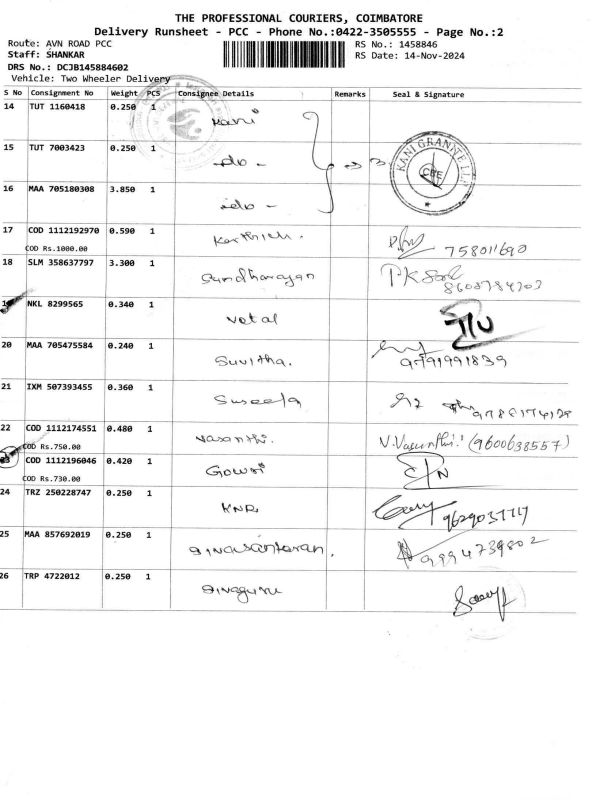 THE PROFESSIONAL COURIERS, COIMBATORE
Delivery Runsheet - PCC - Phone No.:0422-3505555 - Page No.:2
Route: AVN ROAD PCC RS No.: 1458846
Staff: SHANKAR RS Date: 14-Nov-2024
DRS No.: DCJB145884602
Vehicle: Two Wheeler Delivery
S No Consignment No Weight PCS Consignee Details Remarks Seal & Signature
14 TUT 1160418 0.250 1 Kani
15 TUT 7003423 0.250 1 -do- KANI GRANITE LLP CBE
16 MAA 705180308 3.850 1 -do-
17 COD 1112192970 0.590 1 Karthick.
COD Rs.1000.00
18 SLM 358637797 3.300 1 Sundharajan
NKL 8299565 0.340 1 Vetal
20 MAA 705475584 0.240 1 Suvitha. 9791991839
21 IXM 507393455 0.360 1 Suseela
22 COD 1112174551 0.480 1 Vasanthi. V.Vasanthi (9600638557)
COD Rs.750.00
23 COD 1112196046 0.420 1 Gowri
COD Rs.730.00
24 TRZ 250228747 0.250 1 KNR
25 MAA 857692019 0.250 1 9994739802
26 TRP 4722012 0.250 1